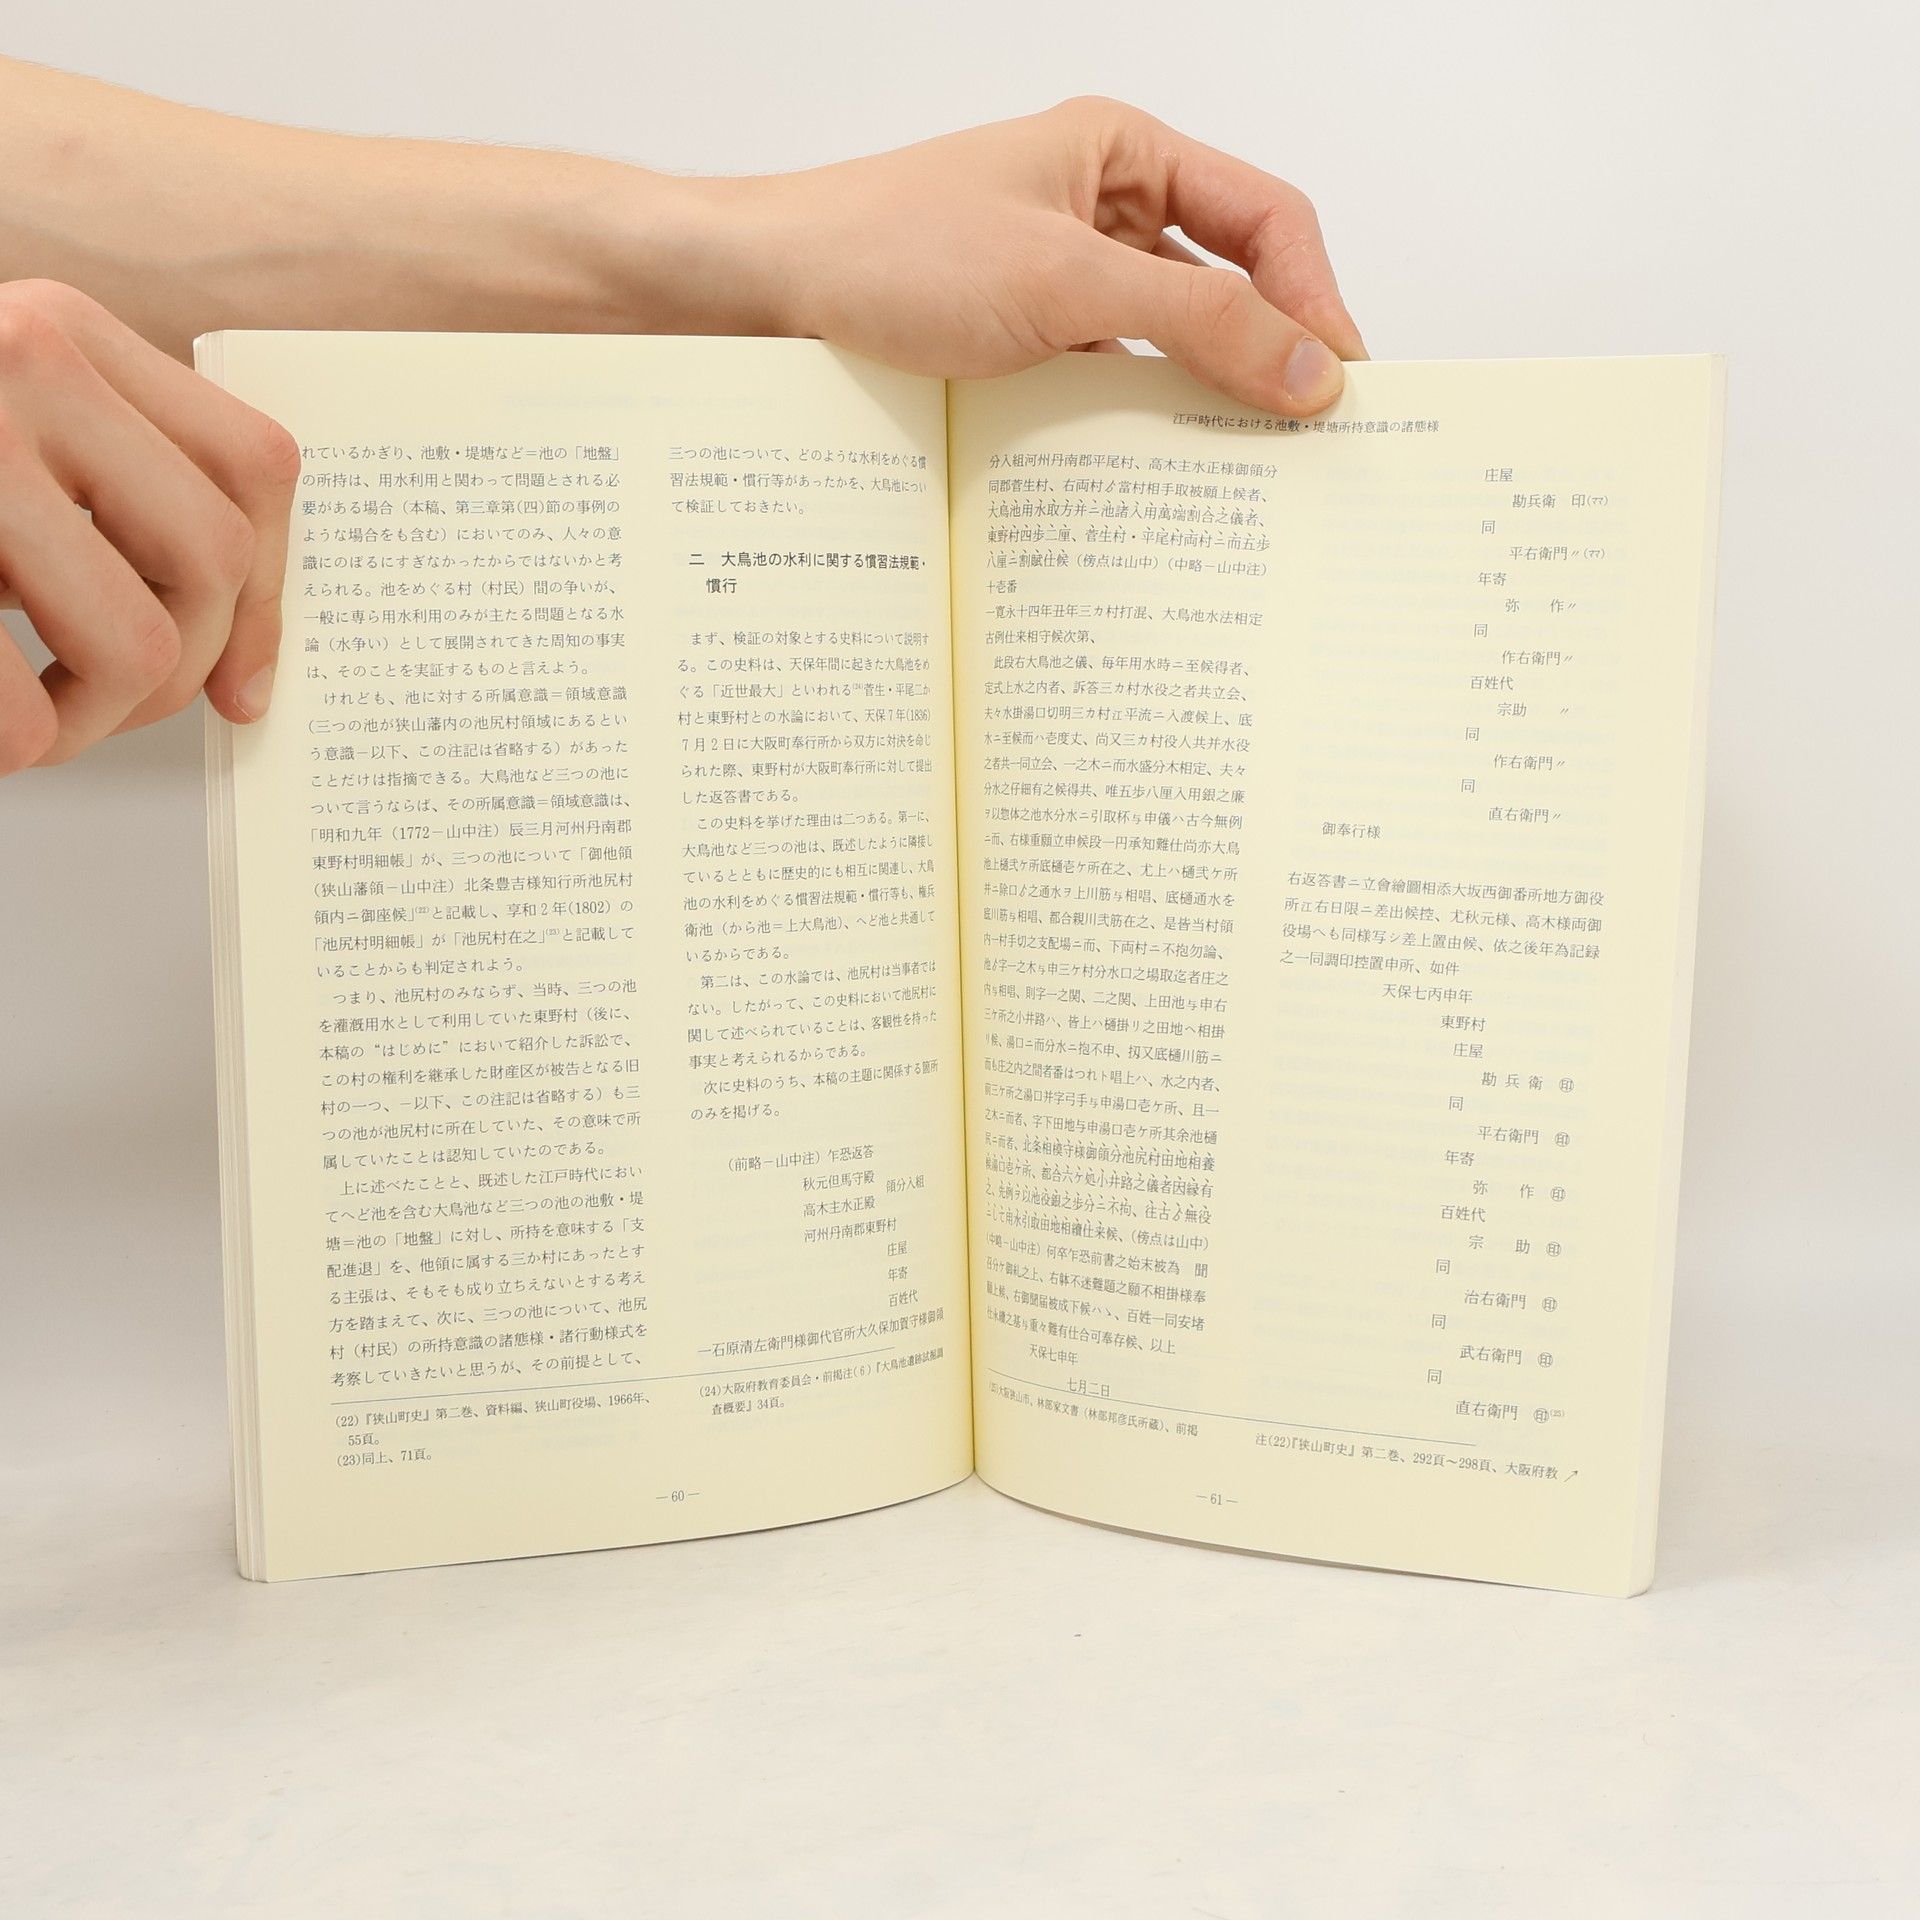 れているかぎり、池敷・堤塘など＝池の「地盤」
の所持は、用水利用と関わって問題とされる必
要がある場合（本稿、第三章第(四)節の事例の
ような場合をも含む）においてのみ、人々の意
識にのぼるにすぎなかったからではないかと考
えられる。池をめぐる村（村民）間の争いが、
一般に専ら用水利用のみが主たる問題となる水
論（水争い）として展開されてきた周知の事実
は、そのことを実証するものと言えよう。
けれども、池に対する所属意識＝領域意識
（三つの池が狭山藩内の池尻村領域にあるとい
う意識－以下、この注記は省略する）があった
ことだけは指摘できる。大鳥池など三つの池に
ついて言うならば、その所属意識＝領域意識は、
「明和九年（1772－山中注）辰三月河州丹南郡
東野村明細帳」が、三つの池について「御他領
（狭山藩領－山中注）北条豊吉様知行所池尻村
領内ニ御座候」(22)と記載し、享和２年(1802) の
「池尻村明細帳」が「池尻村在之」(23)と記載して
いることからも判定されよう。
つまり、池尻村のみならず、当時、三つの池
を灌漑用水として利用していた東野村（後に、
本稿の“はじめに”において紹介した訴訟で、
この村の権利を継承した財産区が被告となる旧
村の一つ、－以下、この注記は省略する）も三
つの池が池尻村に所在していた、その意味で所
属していたことは認知していたのである。
上に述べたことと、既述した江戸時代におい
てへど池を含む大鳥池など三つの池の池敷・堤
塘＝池の「地盤」に対し、所持を意味する「支
配進退」を、他領に属する三か村にあったとす
る主張は、そもそも成り立ちえないとする考え
方を踏まえて、次に、三つの池について、池尻
村（村民）の所持意識の諸態様・諸行動様式を
考察していきたいと思うが、その前提として、
(22)『狭山町史』第二巻、資料編、狭山町役場、1966年、
55頁。
(23)同上、71頁。
三つの池について、どのような水利をめぐる慣
習法規範・慣行等があったかを、大鳥池につい
て検証しておきたい。
二　大鳥池の水利に関する慣習法規範・
慣行
まず、検証の対象とする史料について説明す
る。この史料は、天保年間に起きた大鳥池をめ
ぐる「近世最大」といわれる(24)菅生・平尾二か
村と東野村との水論において、天保７年(1836)
７月２日に大阪町奉行所から双方に対決を命じ
られた際、東野村が大阪町奉行所に対して提出
した返答書である。
この史料を挙げた理由は二つある。第一に、
大鳥池など三つの池は、既述したように隣接し
ているとともに歴史的にも相互に関連し、大鳥
池の水利をめぐる慣習法規範・慣行等も、権兵
衛池（から池＝上大鳥池）、へど池と共通して
いるからである。
第二は、この水論では、池尻村は当事者では
ない。したがって、この史料において池尻村に
関して述べられていることは、客観性を持った
事実と考えられるからである。
次に史料のうち、本稿の主題に関係する箇所
のみを掲げる。
（前略－山中注）乍恐返答
秋元但馬守殿
領分入組
高木主水正殿
河州丹南郡東野村
庄屋
年寄
百姓代
一石原清左衛門様御代官所大久保加賀守様御領
(24)大阪府教育委員会・前掲注(６)『大鳥池遺跡試掘調
査概要』34頁。
―60―
江戸時代における池敷・堤塘所持意識の諸態様
分入組河州丹南郡平尾村、高木主水正様御領分
同郡菅生村、右両村ゟ當村相手取被願上候者、
大鳥池用水取方并ニ池諸入用萬端割合之儀者、
東野村四歩二厘、菅生村・平尾村両村ニ而五歩
八厘ニ割賦仕候（傍点は山中）（中略－山中注）
十壱番
一寛永十四年丑年三カ村打混、大鳥池水法相定
古例仕来相守候次第、
此段右大鳥池之儀、毎年用水時ニ至候得者、
定式上水之内者、訴答三カ村水役之者共立会、
夫々水掛湯口切明三カ村江平流ニ入渡候上、底
水ニ至候而ハ壱度丈、尚又三カ村役人共并水役
之者共一同立会、一之木ニ而水盛分木相定、夫々
分水之仔細有之候得共、唯五歩八厘入用銀之廉
ヲ以惣体之池水分水ニ引取杯与申儀ハ古今無例
ニ而、右様重願立申候段一円承知難仕尚亦大鳥
池上樋弐ケ所底樋壱ケ所在之、尤上ハ樋弐ケ所
并ニ除口ゟ之通水ヲ上川筋与相唱、底樋通水を
底川筋与相唱、都合親川弐筋在之、是皆当村領
内一村手切之支配場ニ而、下両村ニ不抱勿論、
池ゟ字一之木与申三ケ村分水口之場取迄者庄之
内与相唱、則字一之関、二之関、上田池与申右
三ケ所之小井路ハ、皆上ハ樋掛リ之田地ヘ相掛
リ候、湯口ニ而分水ニ抱不申、扨又底樋川筋ニ
而も庄之内之間者番はつれト唱上ハ、水之内者、
前三ケ所之湯口并字弓手与申湯口壱ケ所、且一
之木ニ而者、字下田地与申湯口壱ケ所其余池樋
尻ニ而者、北条相模守様御領分池尻村田地相養
候湯口壱ケ所、都合六ケ処小井路之儀者因縁有
之、先例ヲ以池役銀之歩分ニ不拘、往古ゟ無役
ニして用水引取田地相續仕来候、（傍点は山中）
（中略－山中注）何卒乍恐前書之始末被為　聞
召分ケ御礼之上、右躰不迷難題之願不相掛様奉
願上候、右御聞届被成下候ハヽ、百姓一同安堵
仕水續之基与重々難有仕合可奉存候、以上
天保七申年
七月二日
(25)大阪狭山市、林部家文書（林部邦彦氏所蔵）、前掲
庄屋
勘兵衛　印(ママ)
同
平右衛門〃(ママ)
年寄
弥　　作〃
同
作右衛門〃
百姓代
宗助　　〃
同
作右衛門〃
同
直右衛門〃
御奉行様
右返答書ニ立會繪圖相添大坂西御番所地方御役
所江右日限ニ差出候控、尤秋元様、高木様両御
役場ヘも同様写シ差上置由候、依之後年為記録
之一同調印控置申所、如件
天保七丙申年
東野村
庄屋
勘 兵 衛　㊞
同
平右衛門　㊞
年寄
弥　　作　㊞
百姓代
宗　　助　㊞
同
治右衛門　㊞
同
武右衛門　㊞
同
直右衛門　㊞(25)
注(22)『狭山町史』第二巻、292頁～298頁、大阪府教 ↗
―61―